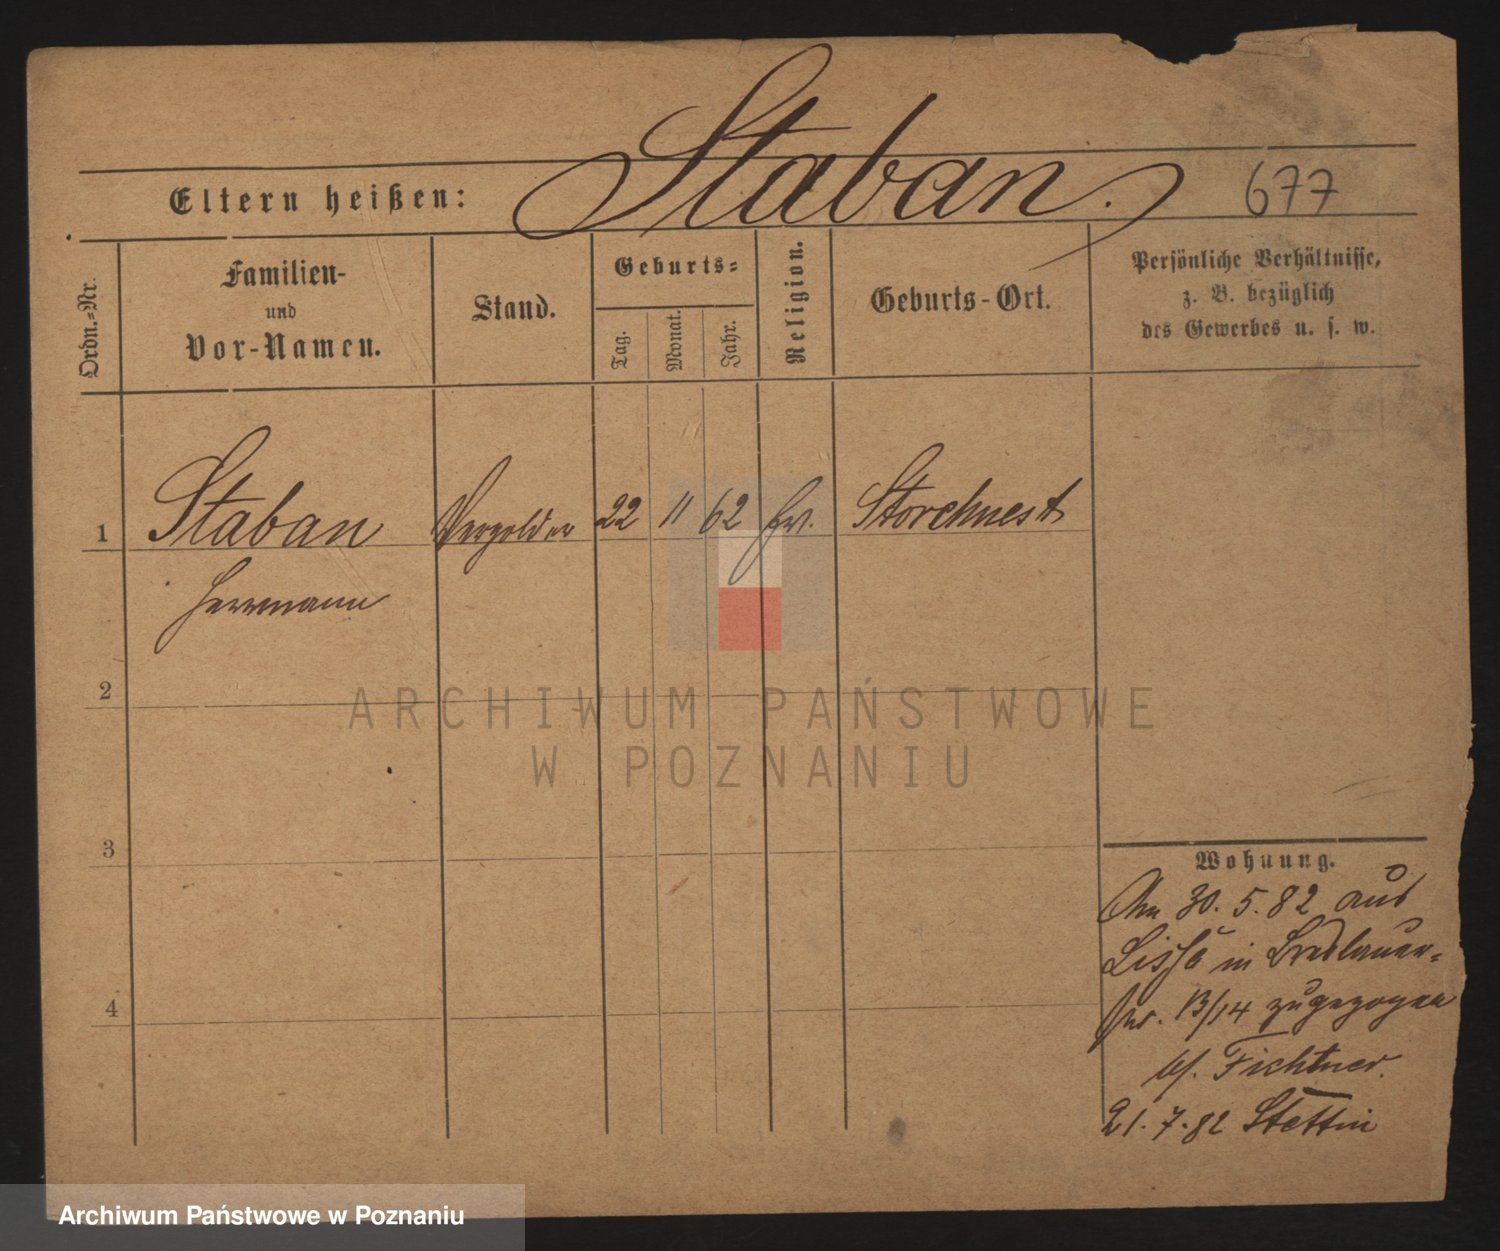 Staban.
Eltern heißen:
677
Ordn.-Nr.
Familien-
und
Vor-Namen.
Stand.
Geburts-
Tag.
Monat.
Jahr.
Religion.
Geburts-Ort.
Persönliche Verhältnisse,
z. B. bezüglich
des Gewerbes u. s. w.
1 Staban Vergolder 22 11 62 Ev. Storchnest
Herrmann
2
3
4
Wohnung.
Am 30. 5. 82 aus
Lissa in Breslauer-
str. 13/14 zugezogen
b/. Fichtner.
21. 7. 82 Stettin
ARCHIWUM PAŃSTWOWE
W POZNANIU
Archiwum Państwowe w Poznaniu